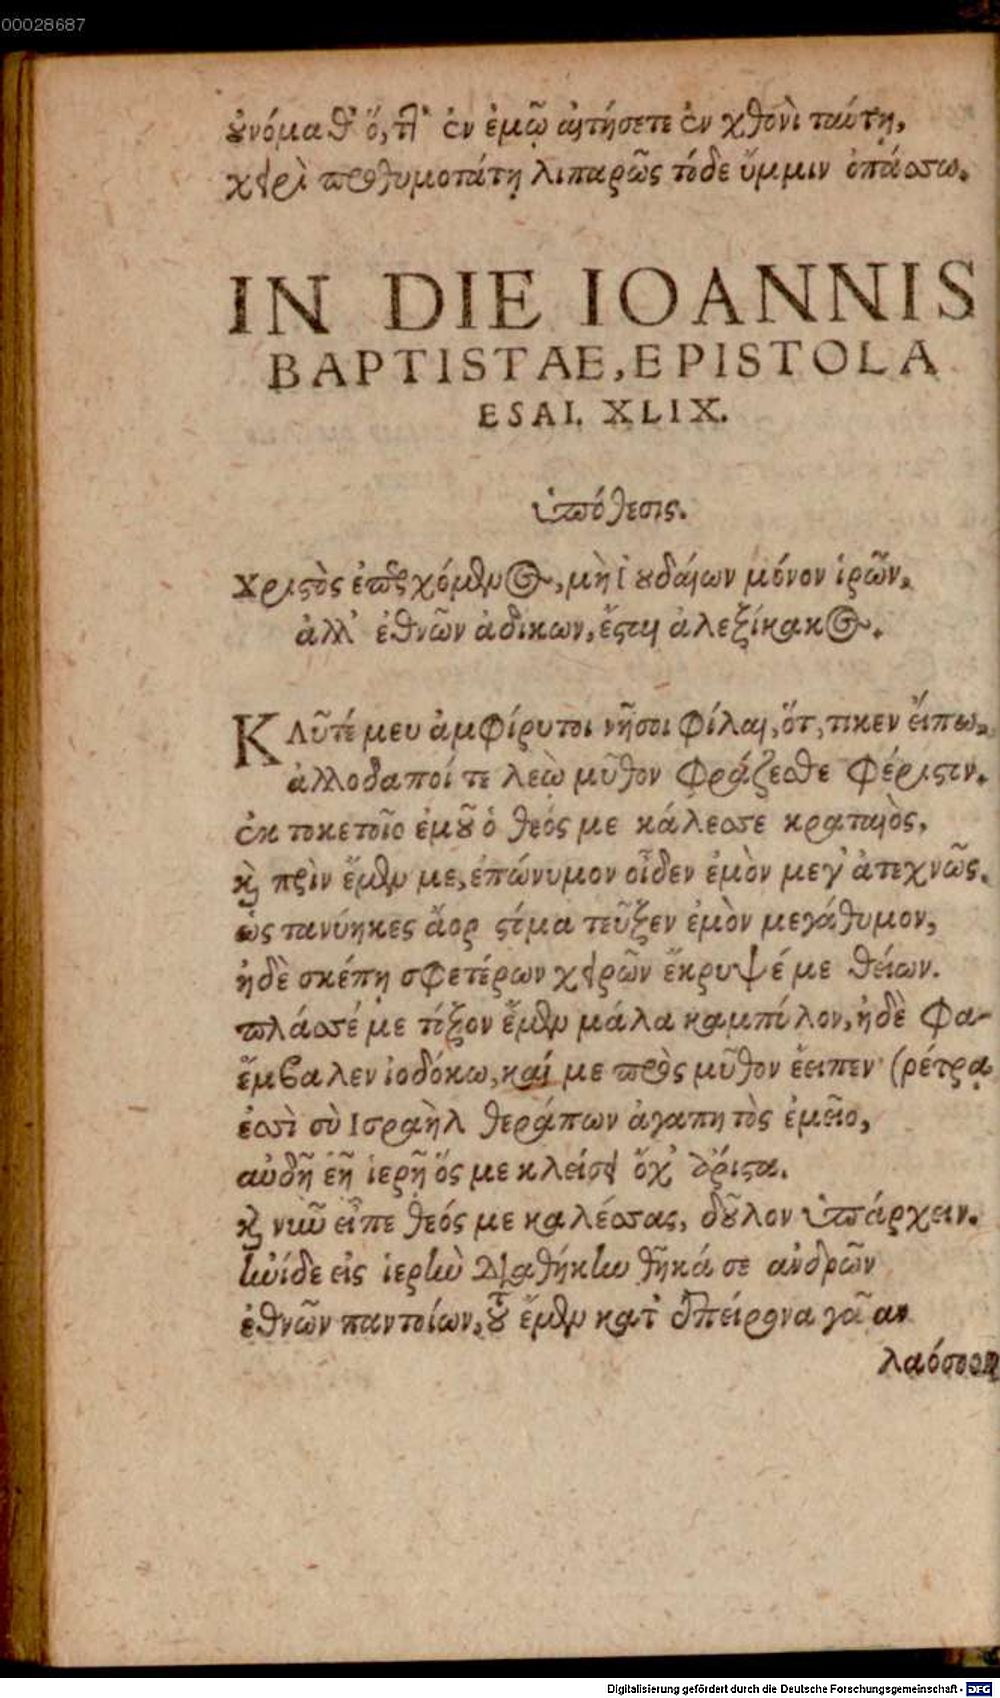 00028687
οὐνόμαθ' ὅ, τι ἐν ἐμῷ αἰτήσετε ἐν χθονὶ ταύτῃ,
χειρὶ προθυμοτάτῃ λιπαρῶς τόδε ὔμμιν ὀπάσσω.
IN DIE IOANNIS
BAPTISTAE, EPISTOLA
ESAI. XLIX.
ὑπόθεσις.
Χριστὸς ἐπερχόμενος, μὴ ἰουδαίων μόνον ἱρῶν,
ἀλλ' ἐθνῶν ἀδίκων, ἔσται ἀλεξίκακος.
ΚΛῦτέ μευ ἀμφίρυτοι νῆσοι φίλαι, ὅτ, τι κεν εἴπω,
ἀλλοδαποί τε λεὼ μῦθον φράζεσθε φέριστιν.
ἐκ τοκετοῖο ἐμοῦ ὁ θεός με κάλεσσε κραταιὸς,
καὶ πρὶν ἔμεν με, ἐπώνυμον οἶδεν ἐμὸν μέγ' ἀτεχνῶς.
ὡς τανύηκες ἄορ στόμα τεῦξεν ἐμὸν μεγάθυμον,
ἠδὲ σκέπῃ σφετέρων χειρῶν ἔκρυψέ με θείων.
πλάσσέ με τόξον ἔμεν μάλα καμπύλον, ἠδὲ φα-
ἔμβαλεν ἰοδόκῳ, καί με πρὸς μῦθον ἔειπεν· (ρέτρᾳ
ἐσσὶ σὺ Ισραὴλ θεράπων ἀγαπητὸς ἐμεῖο,
αὐδῇ ἑῇ ἱερῇ ὅς με κλείσει ὄχ' ἄριστα.
καὶ νῦν εἶπε θεός με καλέσσας, δοῦλον ὑπάρχειν.
ἠνίδε εἰς ἱερὴν διαθήκην θῆκά σε ἀνδρῶν
ἐθνῶν παντοίων, τοῦ ἔμεν κατ' ἀπείρονα γαῖαν
λαόσσοον
Digitalisierung gefördert durch die Deutsche Forschungsgemeinschaft - DFG